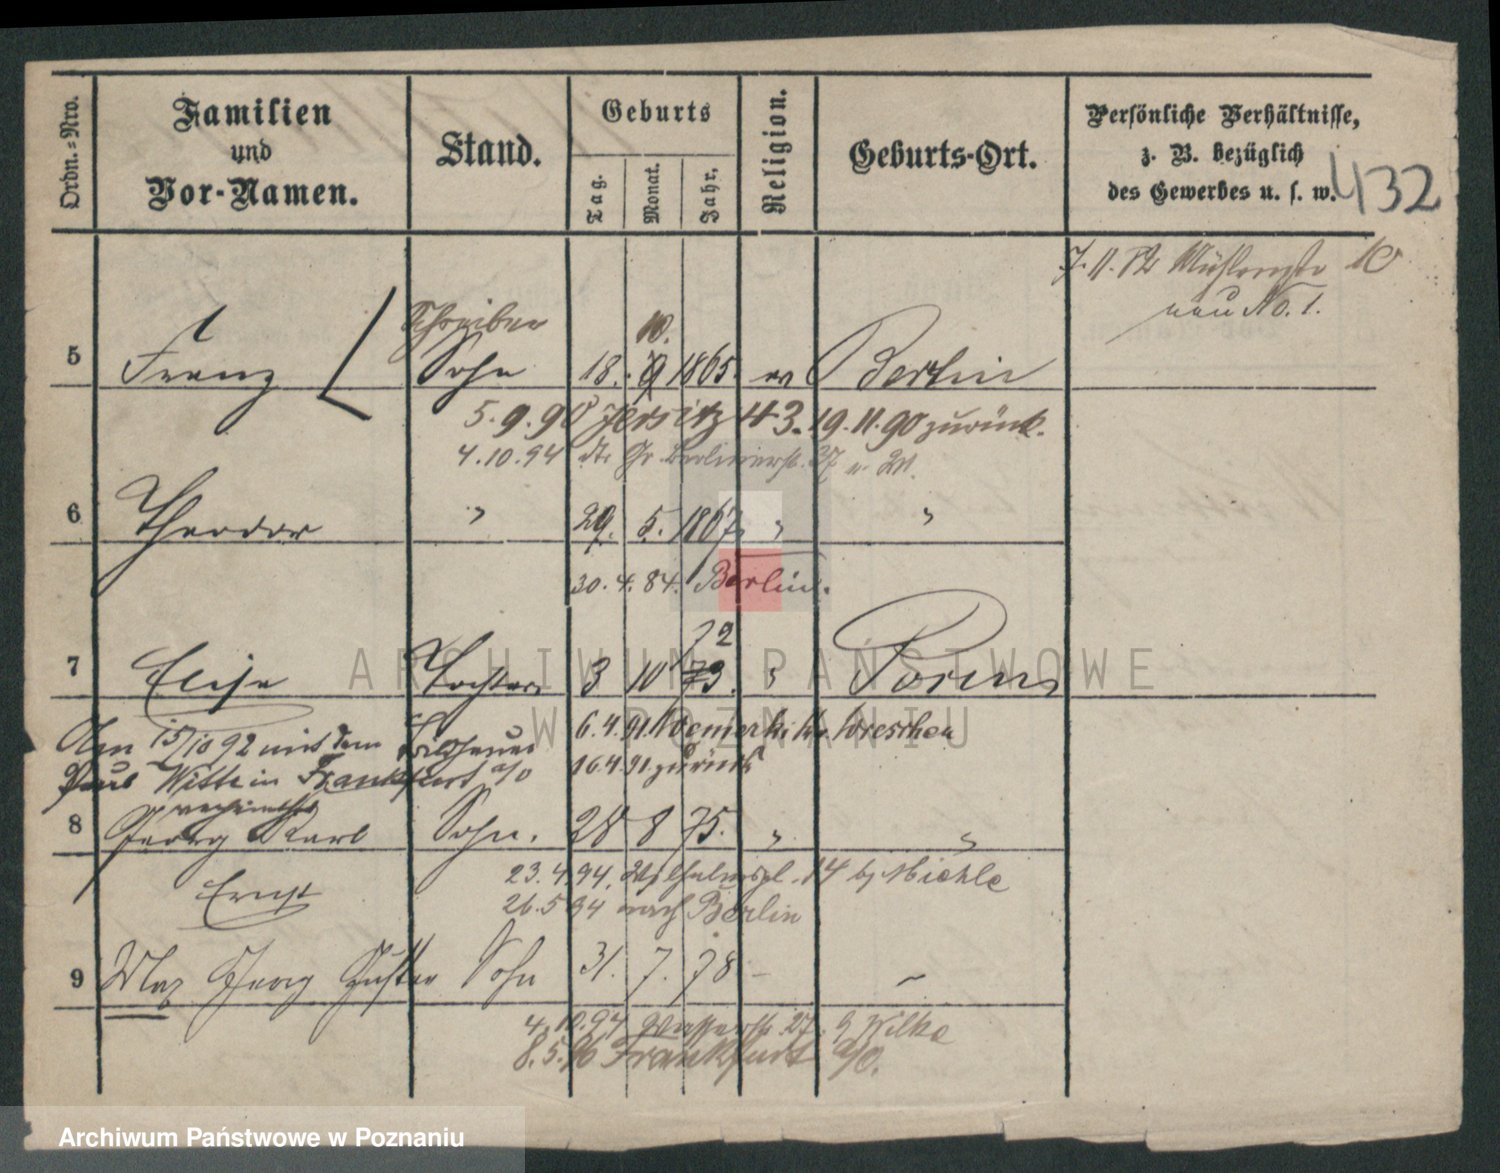 Ordn.-Nro. Familien und Vor-Namen. Stand. Geburts Tag. Monat. Jahr. Religion. Geburts-Ort. Persönliche Verhältnisse, z. B. bezüglich des Gewerbes u. s. w.
432
7. 11. 82 10
neu No. 1.
Schreiber 10.
5 Franz Sohn 18. 9 1865. ev Berlin
5. 9. 90 Jersitz 43. 19. 11. 90 zurück.
4. 10. 94 Gr. Berlinerst. 27
6 Theodor " 29. 5. 1867 " "
30. 4. 84. Berlin.
72
7 Elise Tochter 3 10 73. " Posen
Am 15/10 92 mit dem
6. 4. 91. Kr. Wreschen
Paul Witte in Frankfurt a/O
16. 4. 91. zurück
verheirathet
8 Georg Karl Sohn. 28 8 75. " "
23. 4. 94. Wilhelmspl. 14 bj Miehle
Ernst
26. 5 94 nach Berlin
9 Max Georg Gustav Sohn 31. 7. 78 - ~
4. 10. 94 Wasserstr. 27. b Wilke
8. 5. 96 Frankfurt a/O.
ARCHIWUM PAŃSTWOWE
W POZNANIU
Archiwum Państwowe w Poznaniu